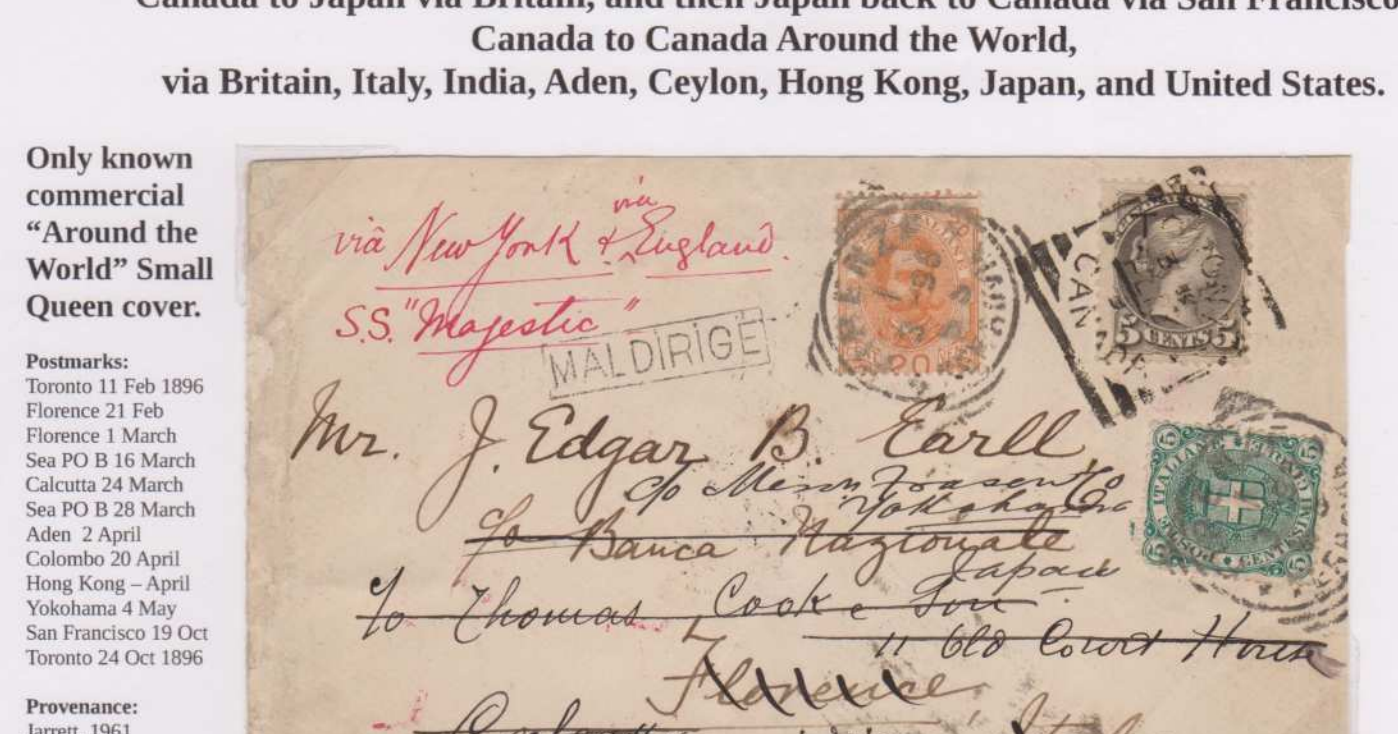 Canada to Japan via Britain, and then Japan back to Canada via San Francisco
Canada to Canada Around the World,
via Britain, Italy, India, Aden, Ceylon, Hong Kong, Japan, and United States.
Only known
commercial
“Around the
World” Small
Queen cover.
Postmarks:
Toronto 11 Feb 1896
Florence 21 Feb
Florence 1 March
Sea PO B 16 March
Calcutta 24 March
Sea PO B 28 March
Aden 2 April
Colombo 20 April
Hong Kong – April
Yokohama 4 May
San Francisco 19 Oct
Toronto 24 Oct 1896
Provenance:
Jarrett, 1961
via
viâ New York & England.
S.S. "Majestic"
MALDIRIGÉ
FIRENZE
20
CANADA
5 CENTS 5
Mr. J. Edgar B. Earll,
c/o Messrs Fraser & Co
Yokohama
c/o Banca Nazionale
Japan
c/o Thomas Cook & Son
11 Old Court House
Florence
Calcutta
Italy
POSTE ITALIANE
5 CENTESIMI 5